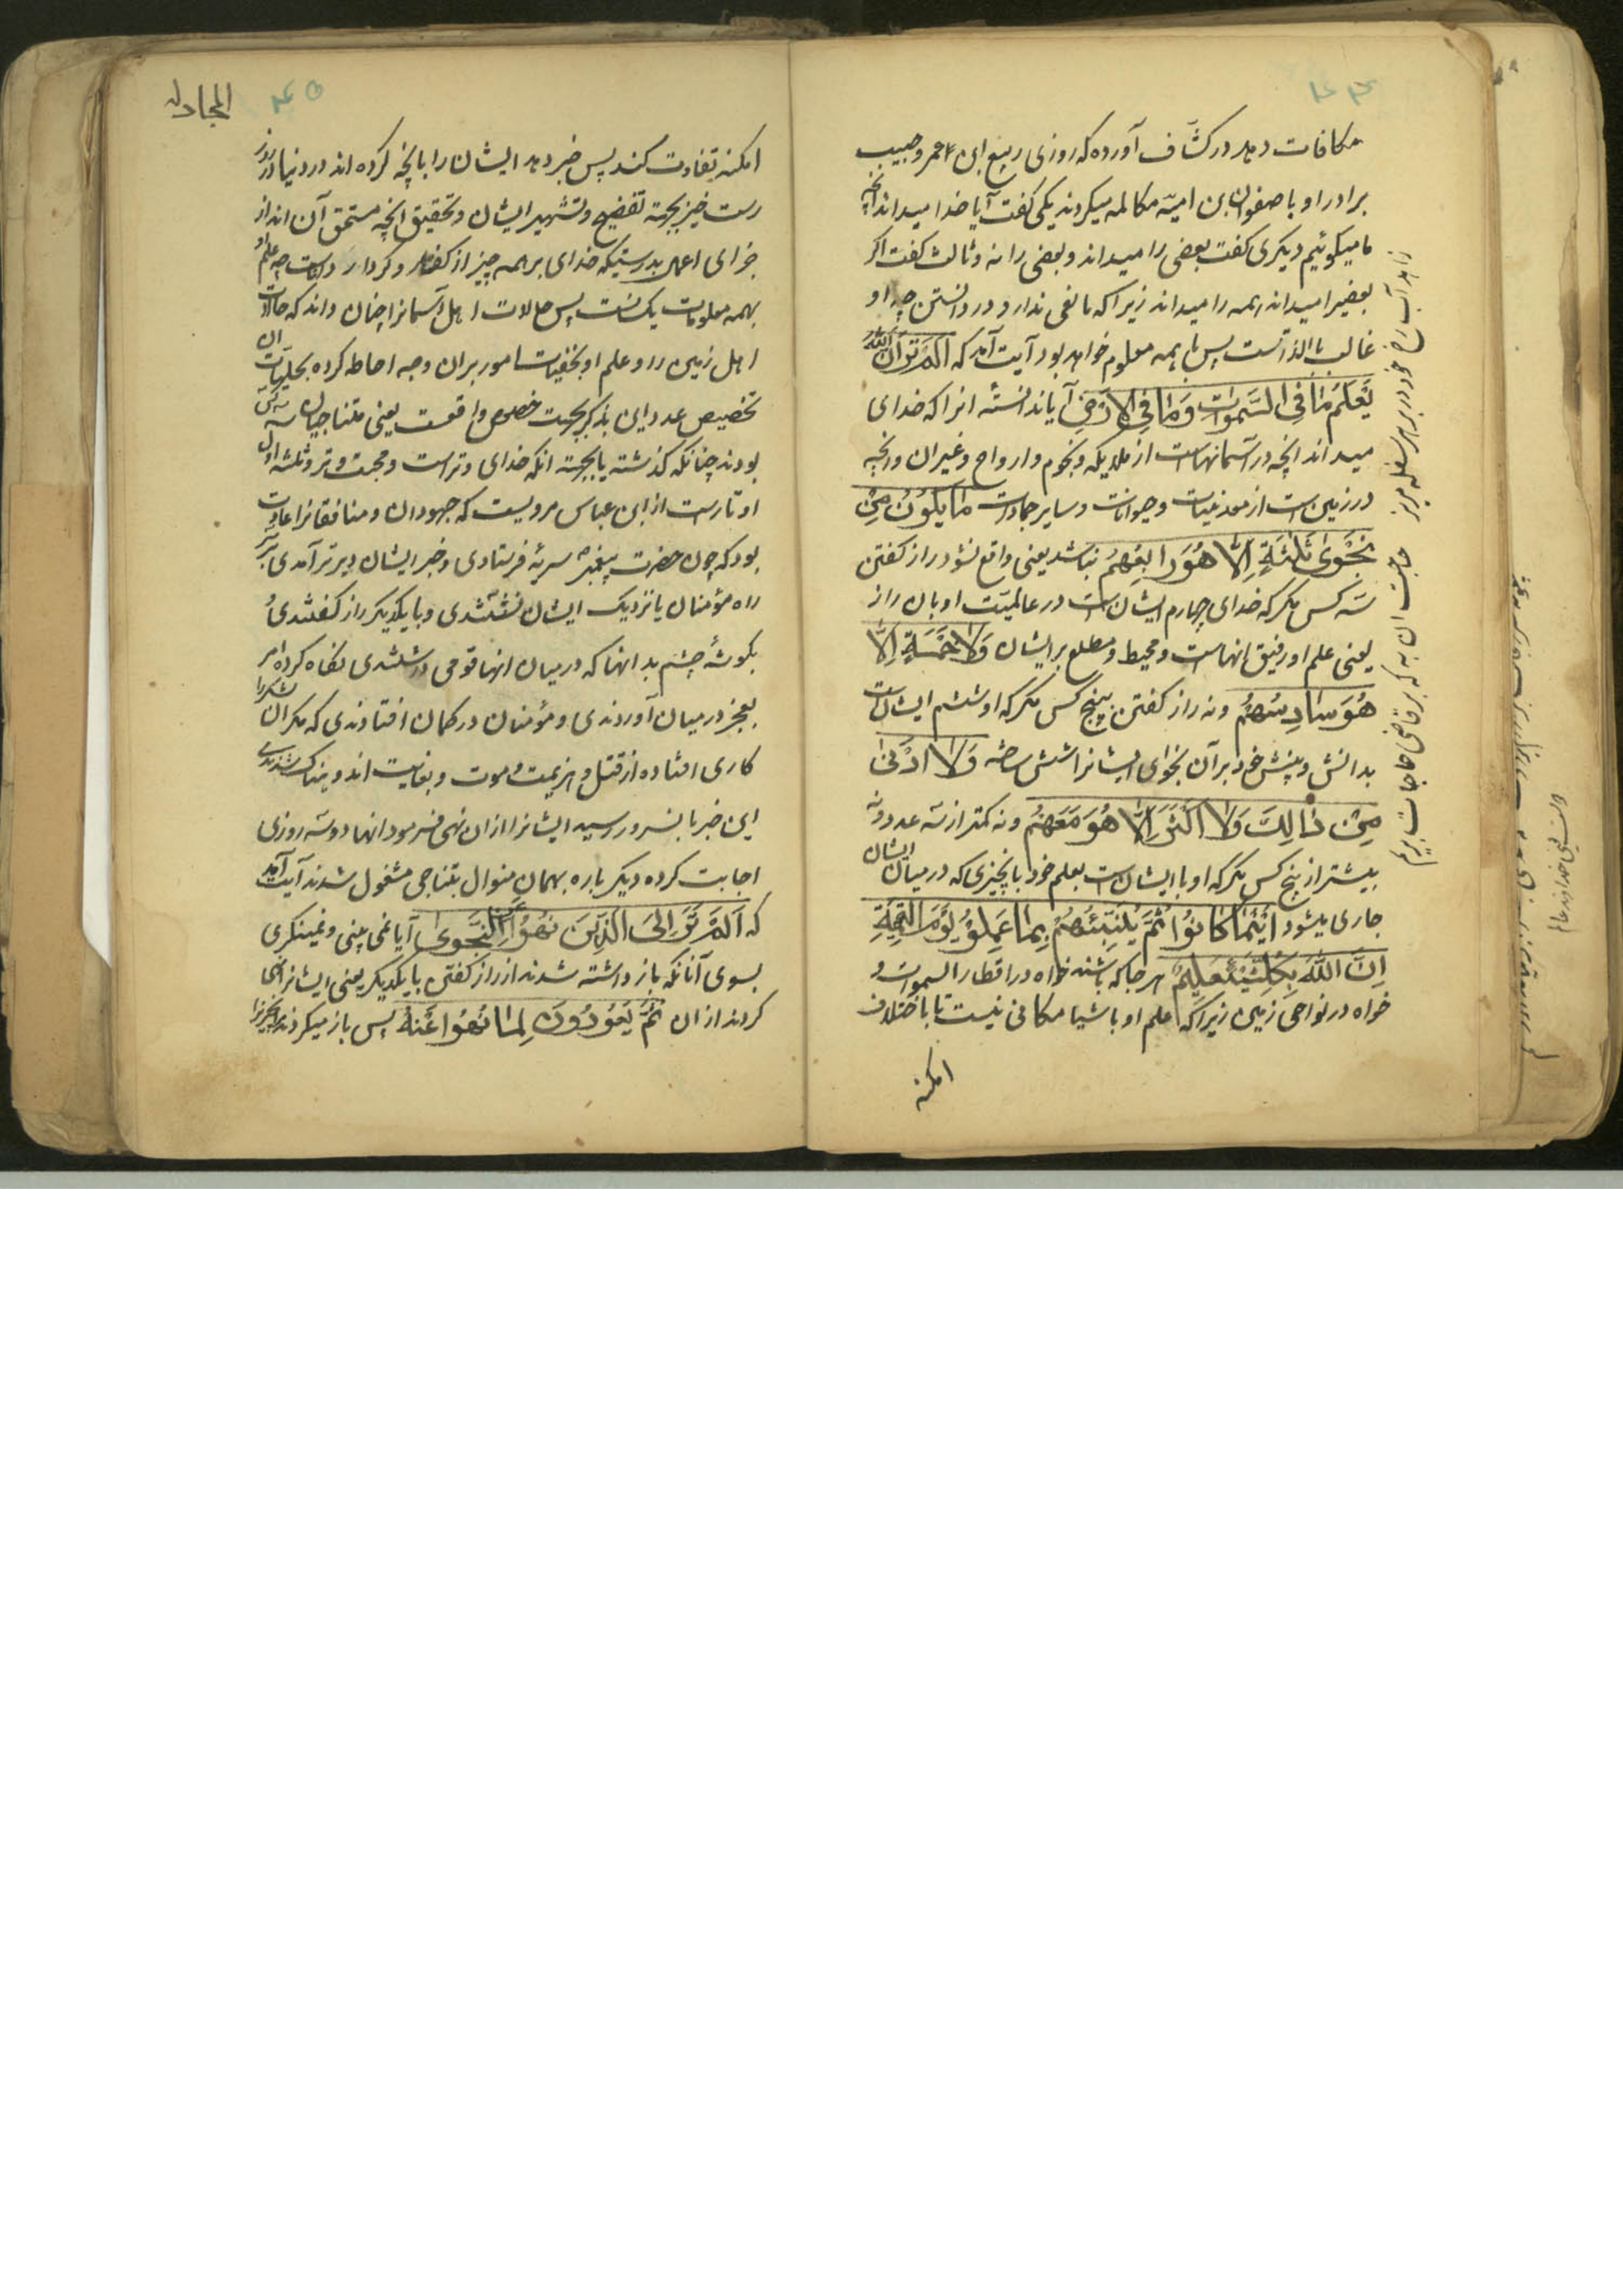 ۴۴
مکافات دهد در کشّاف آورده که روزی ربیع ابن عمر و حبیب
برادر او با صفوان بن امیّه مکالمه میکردند یکی کفت آیا خدا میداند انچه
ما میکوئیم دیکری کفت بعضی را میداند و بعضی را نه و ثالث کفت اکر
بعضیرا میداند همه را میداند زیرا که مانعی ندارد در دانستن چه او
عالم بالذّاتست پس باید همه معلوم خواهد بود آیت آمد که اَلَمْ تَرَ اَنَّ اللّهَ
یَعْلَمُ مَا فِی السَّمٰوٰاتِ وَمٰا فِی الْاَرْضِ آیا ندانستهٔ انرا که خدای
میداند انچه در آسمانهاست از ملایکه و نجوم و ارواح و غیر ان و انچه
در زمین است از معدنیات و حیوانات و سایر جمادات مٰا یَکُونُ مِنْ
نَجْوٰی ثَلٰثَةٍ اِلّٰا هُوَ رٰابِعُهُمْ نباشد یعنی واقع نشود راز کفتن
سه کس مکر که خدای چهارم ایشان است در عالمیّت او بان راز
یعنی علم او رفیق انهاست و محیط و مطلع بر ایشان وَلٰا خَمْسَةٍ اِلّٰا
هُوَ سٰادِسُهُمْ و نه راز کفتن پنج کس مکر که او ششم ایشان است
بدانش و بینش خود بر آن نجوای ایشانرا شش ساخته وَلٰا اَدْنٰی
مِنْ ذٰلِکَ وَلٰا اَکْثَرَ اِلّٰا هُوَ مَعَهُمْ و نه کمتر از سه عدد و نه
بیشتر از پنج کس مکر که او با ایشان است بعلم خود با چیزی که در میان ایشان
جاری میشود اَیْنَمٰا کٰانُوا ثُمَّ یُنَبِّئُهُمْ بِمٰا عَمِلُوْ یَوْمَ الْقِیٰمَةِ
اِنَّ اللّٰهَ بِکُلِّ شَیْئٍ عَلِیمٌ هر جا که باشند خواه در اقطار السموات و
خواه در نواحی زمین زیرا که علم او باشیا مکانی نیست تا باختلاف
امکنه
۴۵
المجادله
امکنه تفاوت کند پس خبر دهد ایشان را بانچه کرده اند در دنیا در روز
رست خیز بجهة تفضیح و تشهیر ایشان و تحقیق انچه مستحق آن اند از
جزای اعمال بدرستیکه خدای بر همه چیز از کفتار و کردار داناست چه علم او
بهمه معلومات یکسانست پس حالات اهل آسمانرا چنان داند که حالات
اهل زمین را و علم او بخفیات امور بران وجه احاطه کرده بجلیّات ان
تخصیص عدد این بذکر بجهت خصوص واقعست یعنی متناجیان سه کس
بودند چنانکه کذشته یا بجهة انکه خدای وتراست و محبت وتر و ثلثه اول
اوتار است از ابن عباس مرویست که جهودان و منافقانرا عادت
بود که چون حضرت پیغمبر سریّه فرستادی و خبر ایشان دیرتر آمدی بر
راه مؤمنان یا نزدیک ایشان نشستندی و با یکدیکر راز کفتندی و
بکوشهٔ چشم بدانها که در میان انها قومی داشتندی نکاه کرده امر
بعجز در میان آوردندی و مؤمنان در کمان افتادندی که مکر ان لشکر را
کاری افتاده از قتل و هزیمت و موت و بغایت اندوهناک شدندی
این خبر بانسرور رسید ایشانرا از ان نهی فرمود انها دو سه روزی
اجابت کرده دیکر باره بهمان منوال بتناجی مشغول شدند آیت آمد
که اَلَمْ تَرَ اِلَی الَّذینَ نُهُوْا عَنِ النَّجْوٰی آیا نمی بینی و نمینکری
بسوی آنانکه باز داشته شدند از راز کفتن با یکدیکر یعنی ایشانرا نهی
کردند از ان ثُمَّ یَعُودُونَ لِمٰا نُهُوا عَنْهُ پس باز میکردند